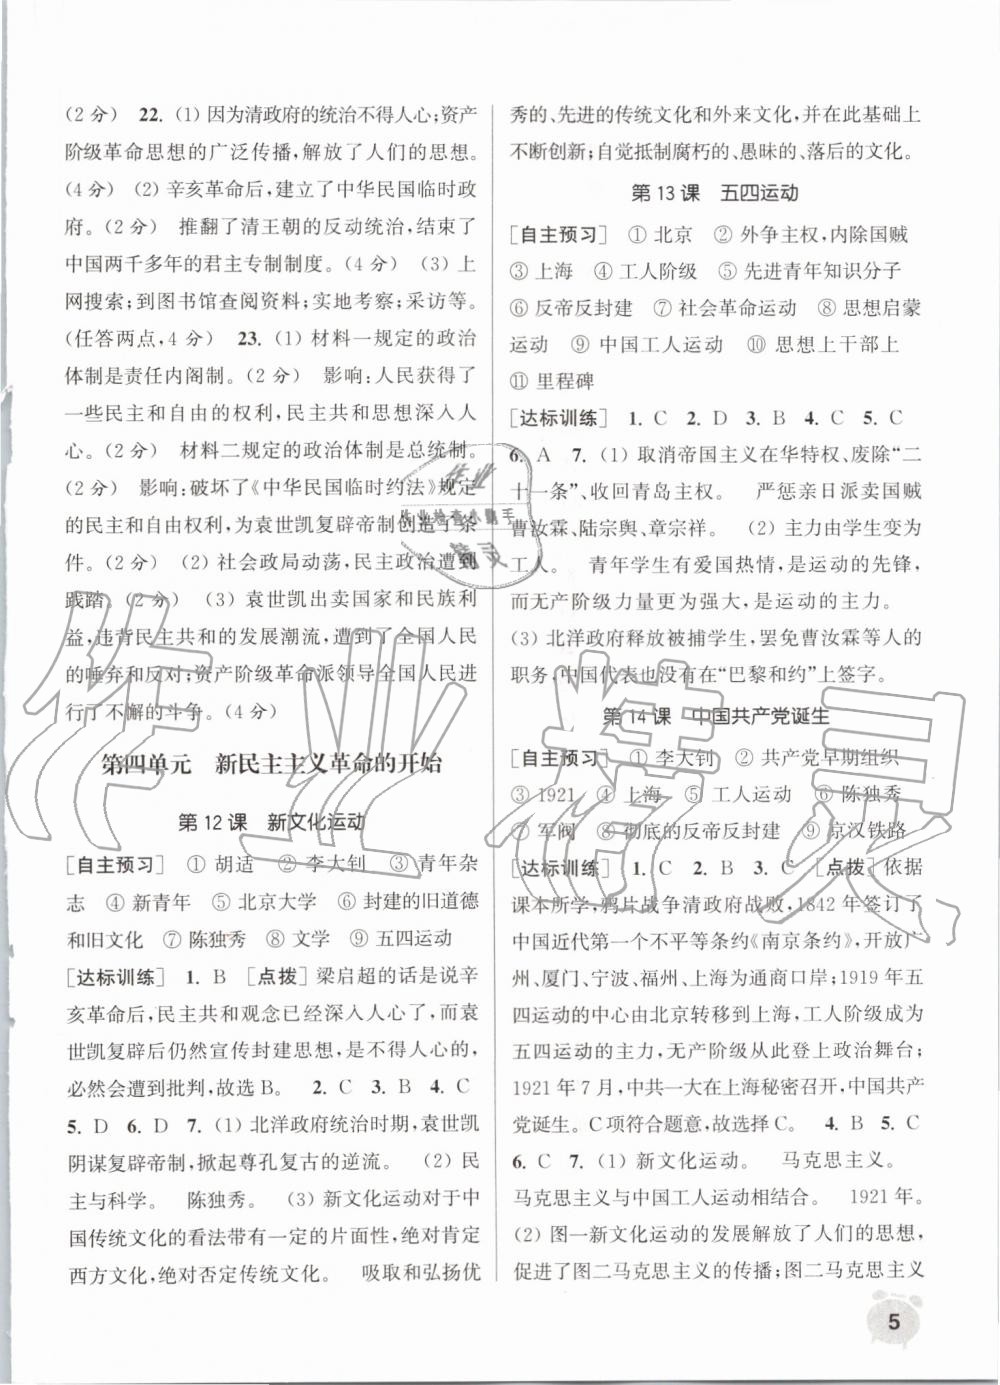 (2分) 22. (1) 因为清政府的统治不得人心;资产
阶级革命思想的广泛传播,解放了人们的思想。
(4分) (2) 辛亥革命后,建立了中华民国临时政
府。(2分) 推翻了清王朝的反动统治,结束了
中国两千多年的君主专制制度。(4分) (3) 上
网搜索;到图书馆查阅资料;实地考察;采访等。
(任答两点,4分) 23. (1) 材料一规定的政治
体制是责任内阁制。(2分) 影响:人民获得了
一些民主和自由的权利,民主共和思想深入人
心。(2分) 材料二规定的政治体制是总统制。
(2分) 影响:破坏了《中华民国临时约法》规定
的民主和自由权利,为袁世凯复辟帝制创造了条
件。(2分) (2) 社会政局动荡,民主政治遭到
践踏。(2分) (3) 袁世凯出卖国家和民族利
益,违背民主共和的发展潮流,遭到了全国人民
的唾弃和反对;资产阶级革命派领导全国人民
进行了不懈的斗争。(4分)
第四单元 新民主主义革命的开始
第12课 新文化运动
[自主预习] ① 胡适 ② 李大钊 ③ 青年杂
志 ④ 新青年 ⑤ 北京大学 ⑥ 封建的旧道德
和旧文化 ⑦ 陈独秀 ⑧ 文学 ⑨ 五四运动
[达标训练] 1. B [点拨] 梁启超的话是说辛
亥革命后,民主共和观念已经深入人心,而袁
世凯复辟后仍然宣传封建思想,是不得人心的,
必然会遭到批判,故选B。 2. C 3. B 4. C
5. D 6. D 7. (1) 北洋政府统治时期,袁世凯
阴谋复辟帝制,掀起尊孔复古的逆流。 (2) 民
主与科学。 陈独秀。 (3) 新文化运动对于中
国传统文化的看法带有一定的片面性,绝对肯定
西方文化,绝对否定传统文化。 吸取和弘扬优
秀的、先进的传统文化和外来文化,并在此基础上
不断创新;自觉抵制腐朽的、愚昧的、落后的文化。
第13课 五四运动
[自主预习] ① 北京 ② 外争主权,内除国贼
③ 上海 ④ 工人阶级 ⑤ 先进青年知识分子
⑥ 反帝反封建 ⑦ 社会革命运动 ⑧ 思想启蒙
运动 ⑨ 中国工人运动 ⑩ 思想上干部上
⑪ 里程碑
[达标训练] 1. C 2. D 3. B 4. C 5. C
6. A 7. (1) 取消帝国主义在华特权、废除“二
十一条”、收回青岛主权。 严惩亲日派卖国贼
曹汝霖、陆宗舆、章宗祥。 (2) 主力由学生变为
工人。 青年学生有爱国热情,是运动的先锋,
而无产阶级力量更为强大,是运动的主力。
(3) 北洋政府释放被捕学生,罢免曹汝霖等人的
职务,中国代表也没有在“巴黎和约”上签字。
第14课 中国共产党诞生
[自主预习] ① 李大钊 ② 共产党早期组织
③ 1921 ④ 上海 ⑤ 工人运动 ⑥ 陈独秀
⑦ 军阀 ⑧ 彻底的反帝反封建 ⑨ 京汉铁路
[达标训练] 1. C 2. B 3. C [点拨] 依据
课本所学,鸦片战争清政府战败,1842年签订了
中国近代第一个不平等条约《南京条约》,开放广
州、厦门、宁波、福州、上海为通商口岸;1919年五
四运动的中心由北京转移到上海,工人阶级成为
五四运动的主力,无产阶级从此登上政治舞台;
1921年7月,中共一大在上海秘密召开,中国共产
党诞生。C项符合题意,故选择C。 4. B 5. C
6. C 7. (1) 新文化运动。 马克思主义。
马克思主义与中国工人运动相结合。 1921年。
(2) 图一新文化运动的发展解放了人们的思想,
促进了图二马克思主义的传播;图二马克思主义
5
作业
作业检查小霸王
精灵
作业精灵